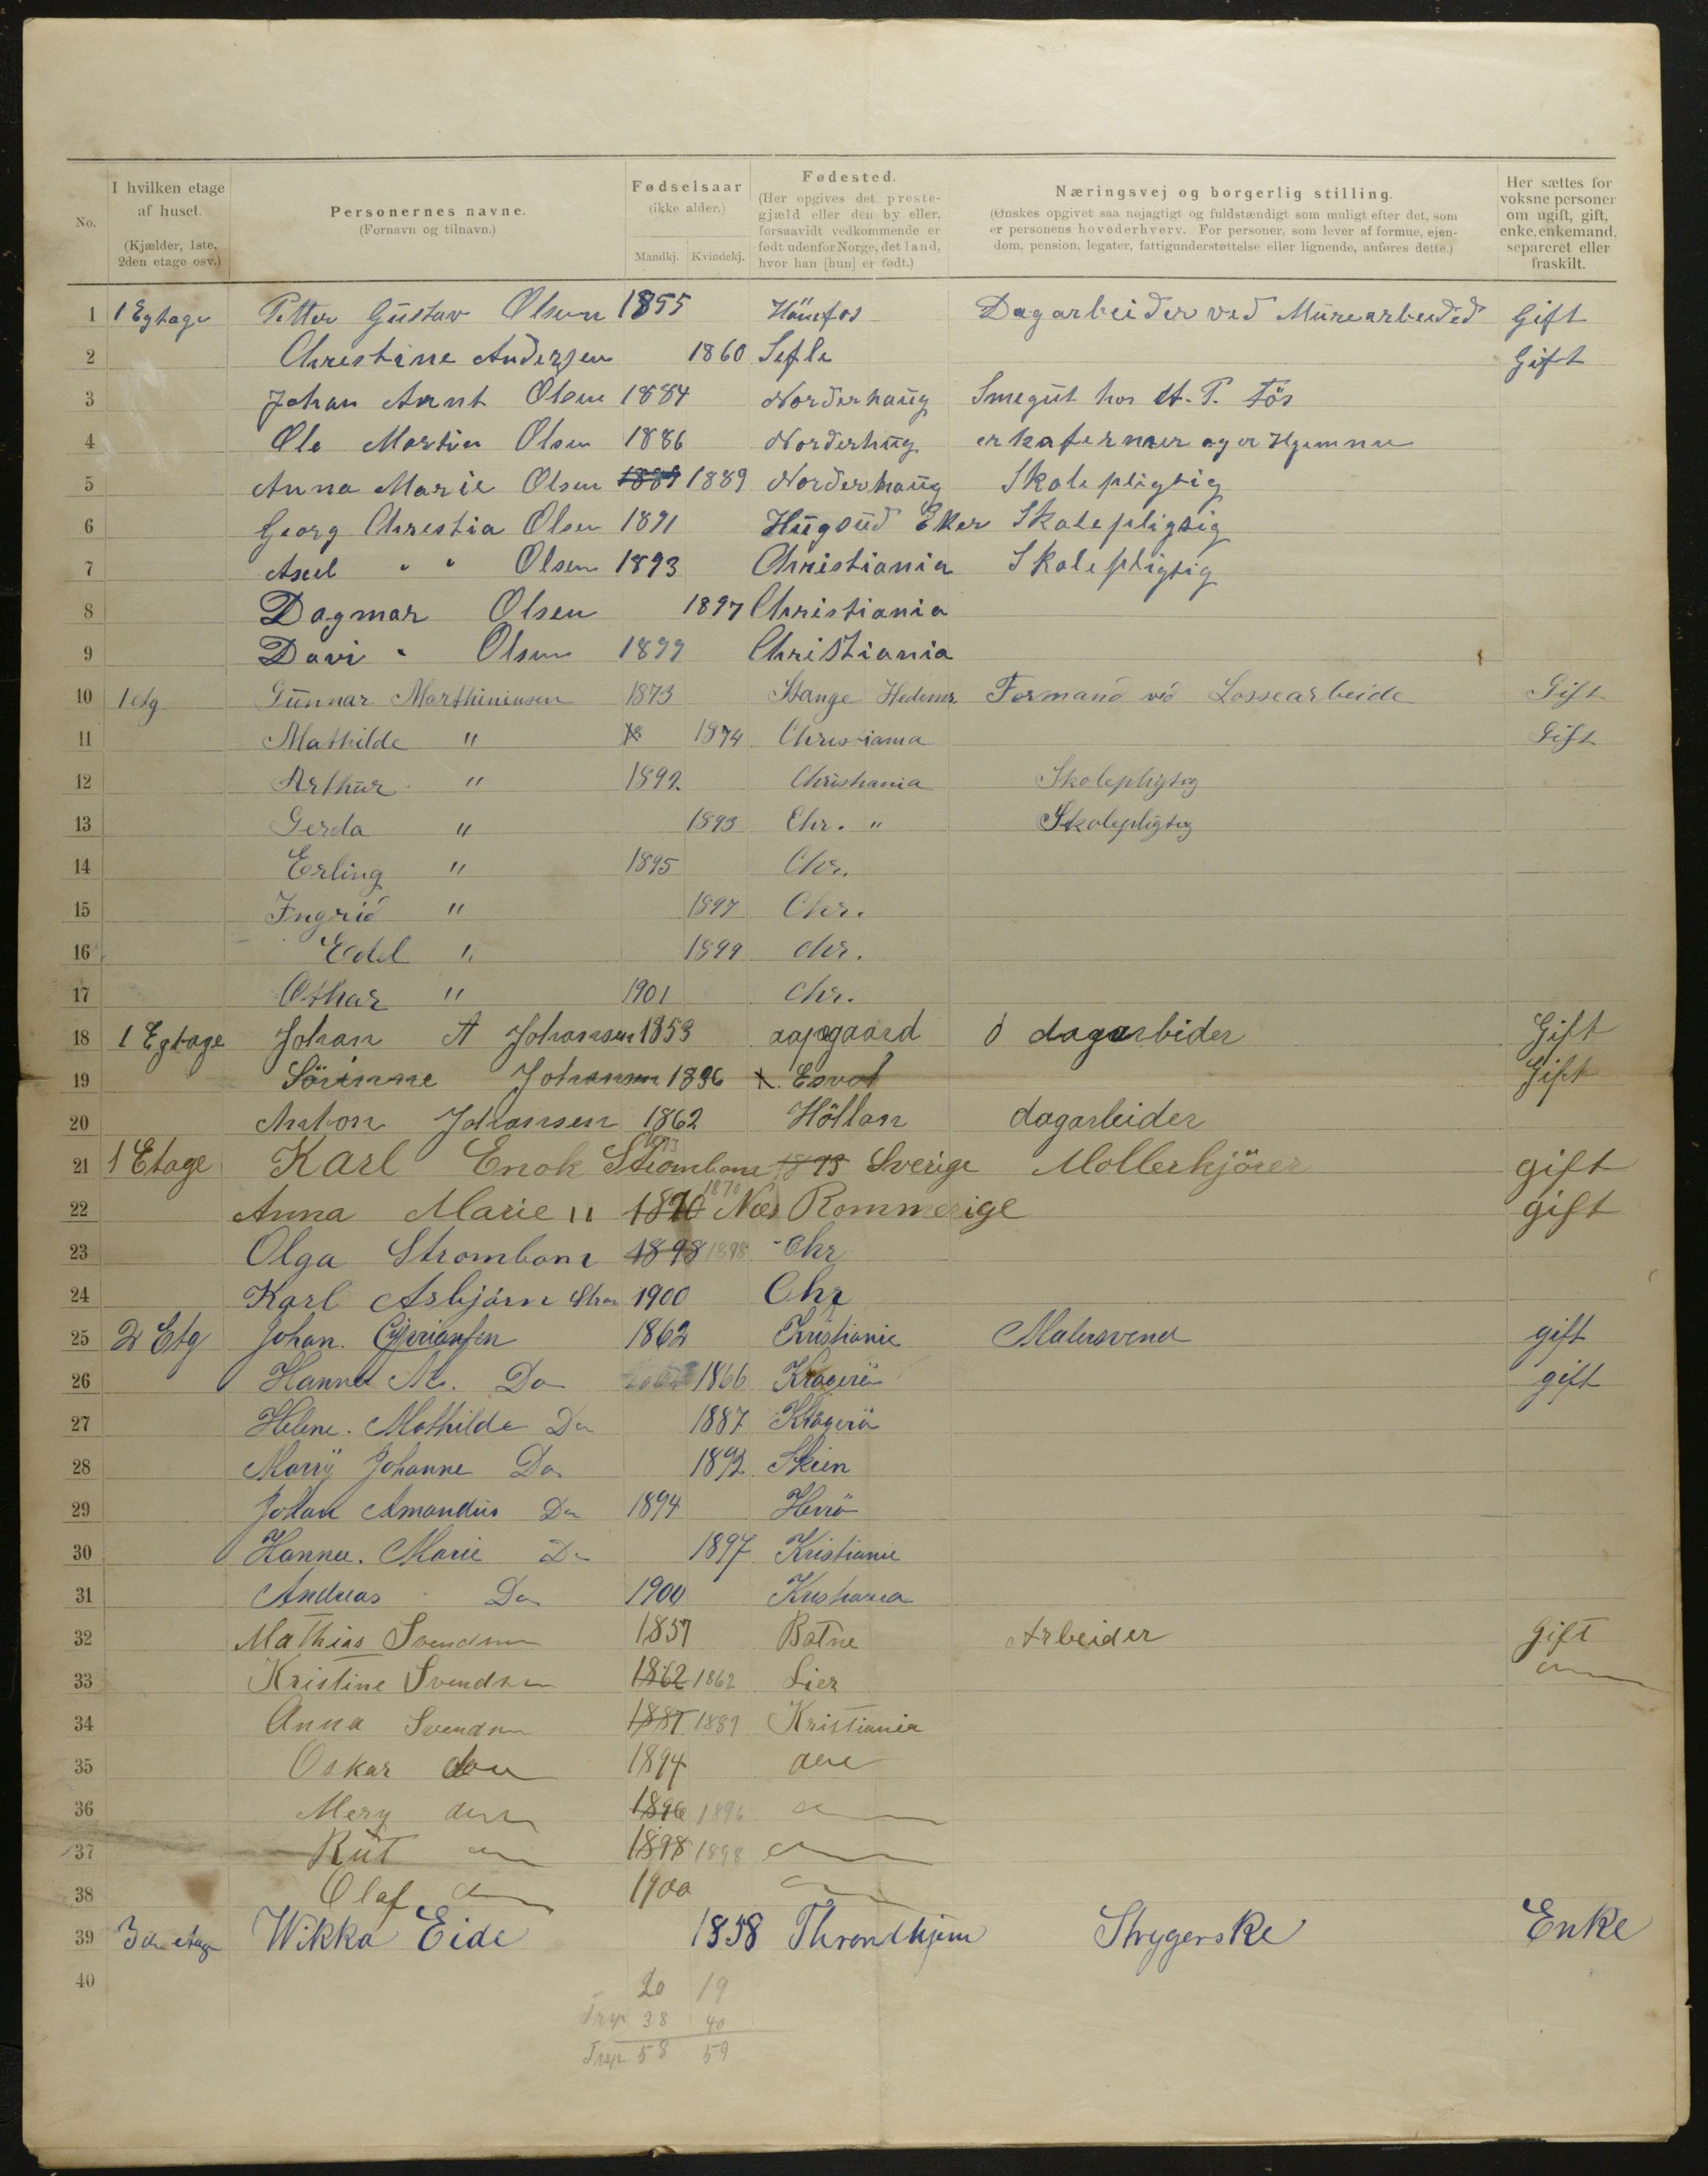 No.
I hvilken etage af huset. (Kjælder, 1ste, 2den etage osv.)
Personernes navne. (Fornavn og tilnavn.)
Fødselsaar (ikke alder.) Mandkj. Kvindekj.
Fødested. (Her opgives det prestegjæld eller den by eller, forsaavidt vedkommende er født udenfor Norge, det land, hvor han [hun] er født.)
Næringsvej og borgerlig stilling. (Ønskes opgivet saa nøjagtigt og fuldstændigt som muligt efter det, som er personens hovederhverv. For personer, som lever af formue, ejendom, pension, legater, fattigunderstøttelse eller lignende, anføres dette.)
Her sættes for voksne personer om ugift, gift, enke, enkemand, separeret eller fraskilt.
1 1 Egtage Petter Gustav Olsen 1855 Hönefos Dagarbeider ved Murearbeided Gift
2 Chrestine Andersen 1860 Gift
3 Johan Arnt Olsen 1884 Norderhaug Smegut hos
4 Ole Martin Olsen 1886 Norderhug
5 Anna Marie Olsen 1889 1889 Norderhaug Skolepligtig
6 Georg Chrestia Olsen 1891 Hugsud Eker Skolepligtig
7 Axel " " Olsen 1893 Christiania Skolepligtig
8 Dagmar Olsen 1897 Christiania
9 Davi " Olsen 1899 Christiania
10 1 etg Gunnar Marthiniusen 1873 Stange Hedemr Formand ved Lossearbeide Gift
11 Mathilde " 18 1874 Christiania Gift
12 Arthur " 1892 Christiania Skolepligtig
13 Gerda " 1893 Chr. " Skolepligtig
14 Erling " 1895 Chr.
15 Ingrid " 1897 Chr.
16 Edel " 1899 chr.
17 Othar " 1901 chr.
18 1 Egtage Johan A Johansen 1853 dagarbider Gift
19 Sörinne Johansen Gift
20 Anton Johansen 1862 Höllan dagarleider
21 1 Etage Karl Enok Strombom 1873 Sverige Mollerkjörer gift
22 Anna Marie " 1870 1870 Nes Rommerige gift
23 Olga Strombom 1898 1898 Chr
24 Karl Asbjörn Stro 1900 Chr
25 2 Etg Johan. Cyprianfen 1862 Kristianie Malersvend gift
26 Hanna M. Do 1866 Kragerö gift
27 Helene. Mathilde Do 1887 Kragerö
28 Marry Johanne Do 1892 Skien
29 Johan Amandus Do 1894 Herö
30 Hanna. Marie Do 1897 Kristianie
31 Andreas Do 1900 Kristiania
32 Mathias Svendsen 1857 Botne Arbeider gift
33 Kristine Svendsen 1862 1862 Lier
34 Anna Svendsen Kristiania
35 Oskar 1894
36 Mery 1896 1896
37 Rut 1898 1898
38 Olaf 1900
39 3de etage Wikka Eide 1858 Throndhjem Strygerske Enke
40
20 19
Trsp 38 40
Trsp 58 59